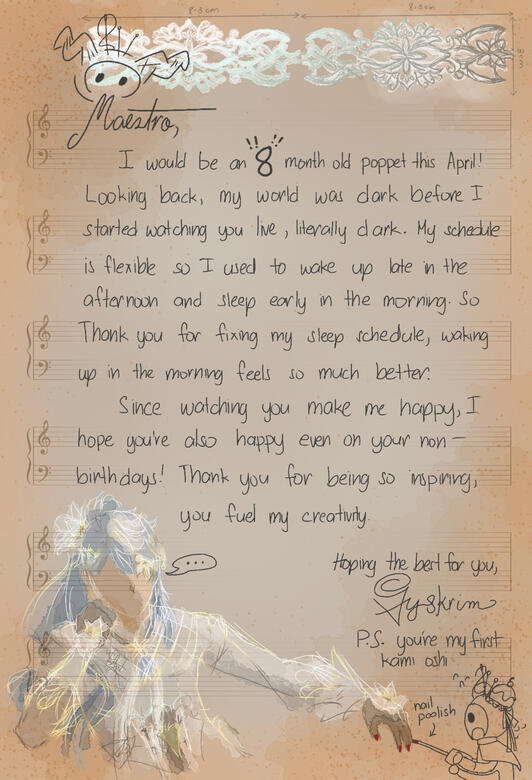 8.3cm 8.3cm
3.3cm
Maestro,
I would be an 8 month old poppet this April!
Looking back, my world was dark before I
started watching you live, literally dark. My schedule
is flexible so I used to wake up late in the
afternoon and sleep early in the morning. So
Thank you for fixing my sleep schedule, waking
up in the morning feels so much better.
Since watching you make me happy, I
hope you're also happy even on your non-
birthdays! Thank you for being so inspiring,
you fuel my creativity.
...
Hoping the best for you,
P.S. you're my first
kami oshi
nail
poolish